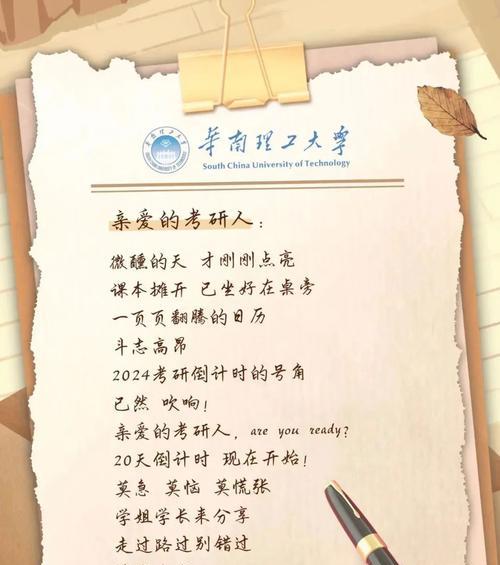 華南理工大学
South China University of Technology
亲爱的考研人：
微醺的天 才刚刚点亮
课本摊开 已坐好在桌旁
一页页翻腾的日历
斗志高昂
2024考研倒计时的号角
已然 吹响！
亲爱的考研人，are you ready？
20天倒计时 现在开始！
莫急 莫恼 莫慌张
学姐学长来分享
走过路过别错过